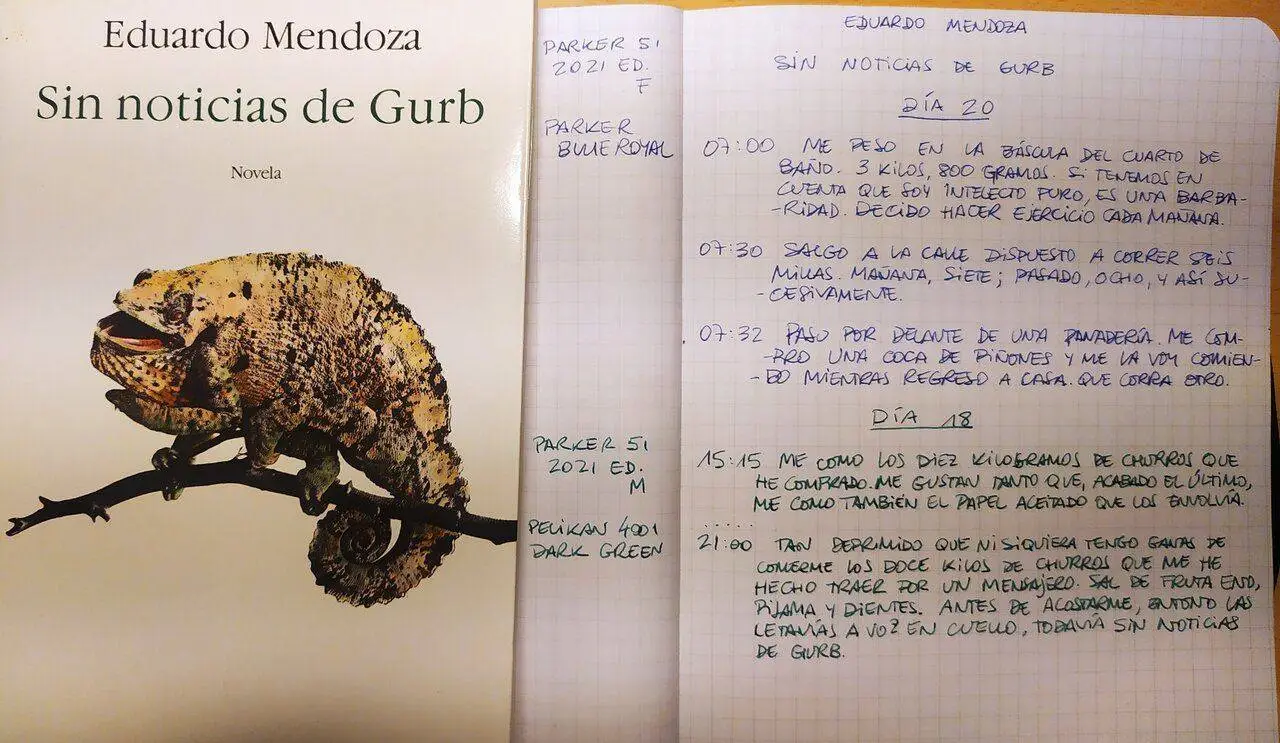 Eduardo Mendoza
Sin noticias de Gurb
Novela
PARKER 51
2021 ED.
F
PARKER
BLUE ROYAL
PARKER 51
2021 ED.
M
PELIKAN 4001
DARK GREEN
EDUARDO MENDOZA
SIN NOTICIAS DE GURB
DÍA 20
07:00 ME PESO EN LA BÁSCULA DEL CUARTO DE
BAÑO. 3 KILOS, 800 GRAMOS. SI TENEMOS EN
CUENTA QUE SOY INTELECTO PURO, ES UNA BARBA-
-RIDAD. DECIDO HACER EJERCICIO CADA MAÑANA.
07:30 SALGO A LA CALLE DISPUESTO A CORRER SEIS
MILLAS. MAÑANA, SIETE; PASADO, OCHO, Y ASÍ SU-
-CESIVAMENTE.
07:32 PASO POR DELANTE DE UNA PANADERÍA. ME COM-
-PRO UNA COCA DE PIÑONES Y ME LA VOY COMIEN-
-DO MIENTRAS REGRESO A CASA. QUE CORRA OTRO.
DÍA 18
15:15 ME COMO LOS DIEZ KILOGRAMOS DE CHURROS QUE
HE COMPRADO. ME GUSTAN TANTO QUE, ACABADO EL ÚLTIMO,
ME COMO TAMBIÉN EL PAPEL ACEITADO QUE LOS ENVOLVIA.
......
21:00 TAN DEPRIMIDO QUE NI SIQUIERA TENGO GANAS DE
COMERME LOS DOCE KILOS DE CHURROS QUE ME HE
HECHO TRAER POR UN MENSAJERO. SAL DE FRUTA ENO,
PIJAMA Y DIENTES. ANTES DE ACOSTARME, ENTONO LAS
LETANÍAS A VOZ EN CUELLO, TODAVÍA SIN NOTICIAS
DE GURB.